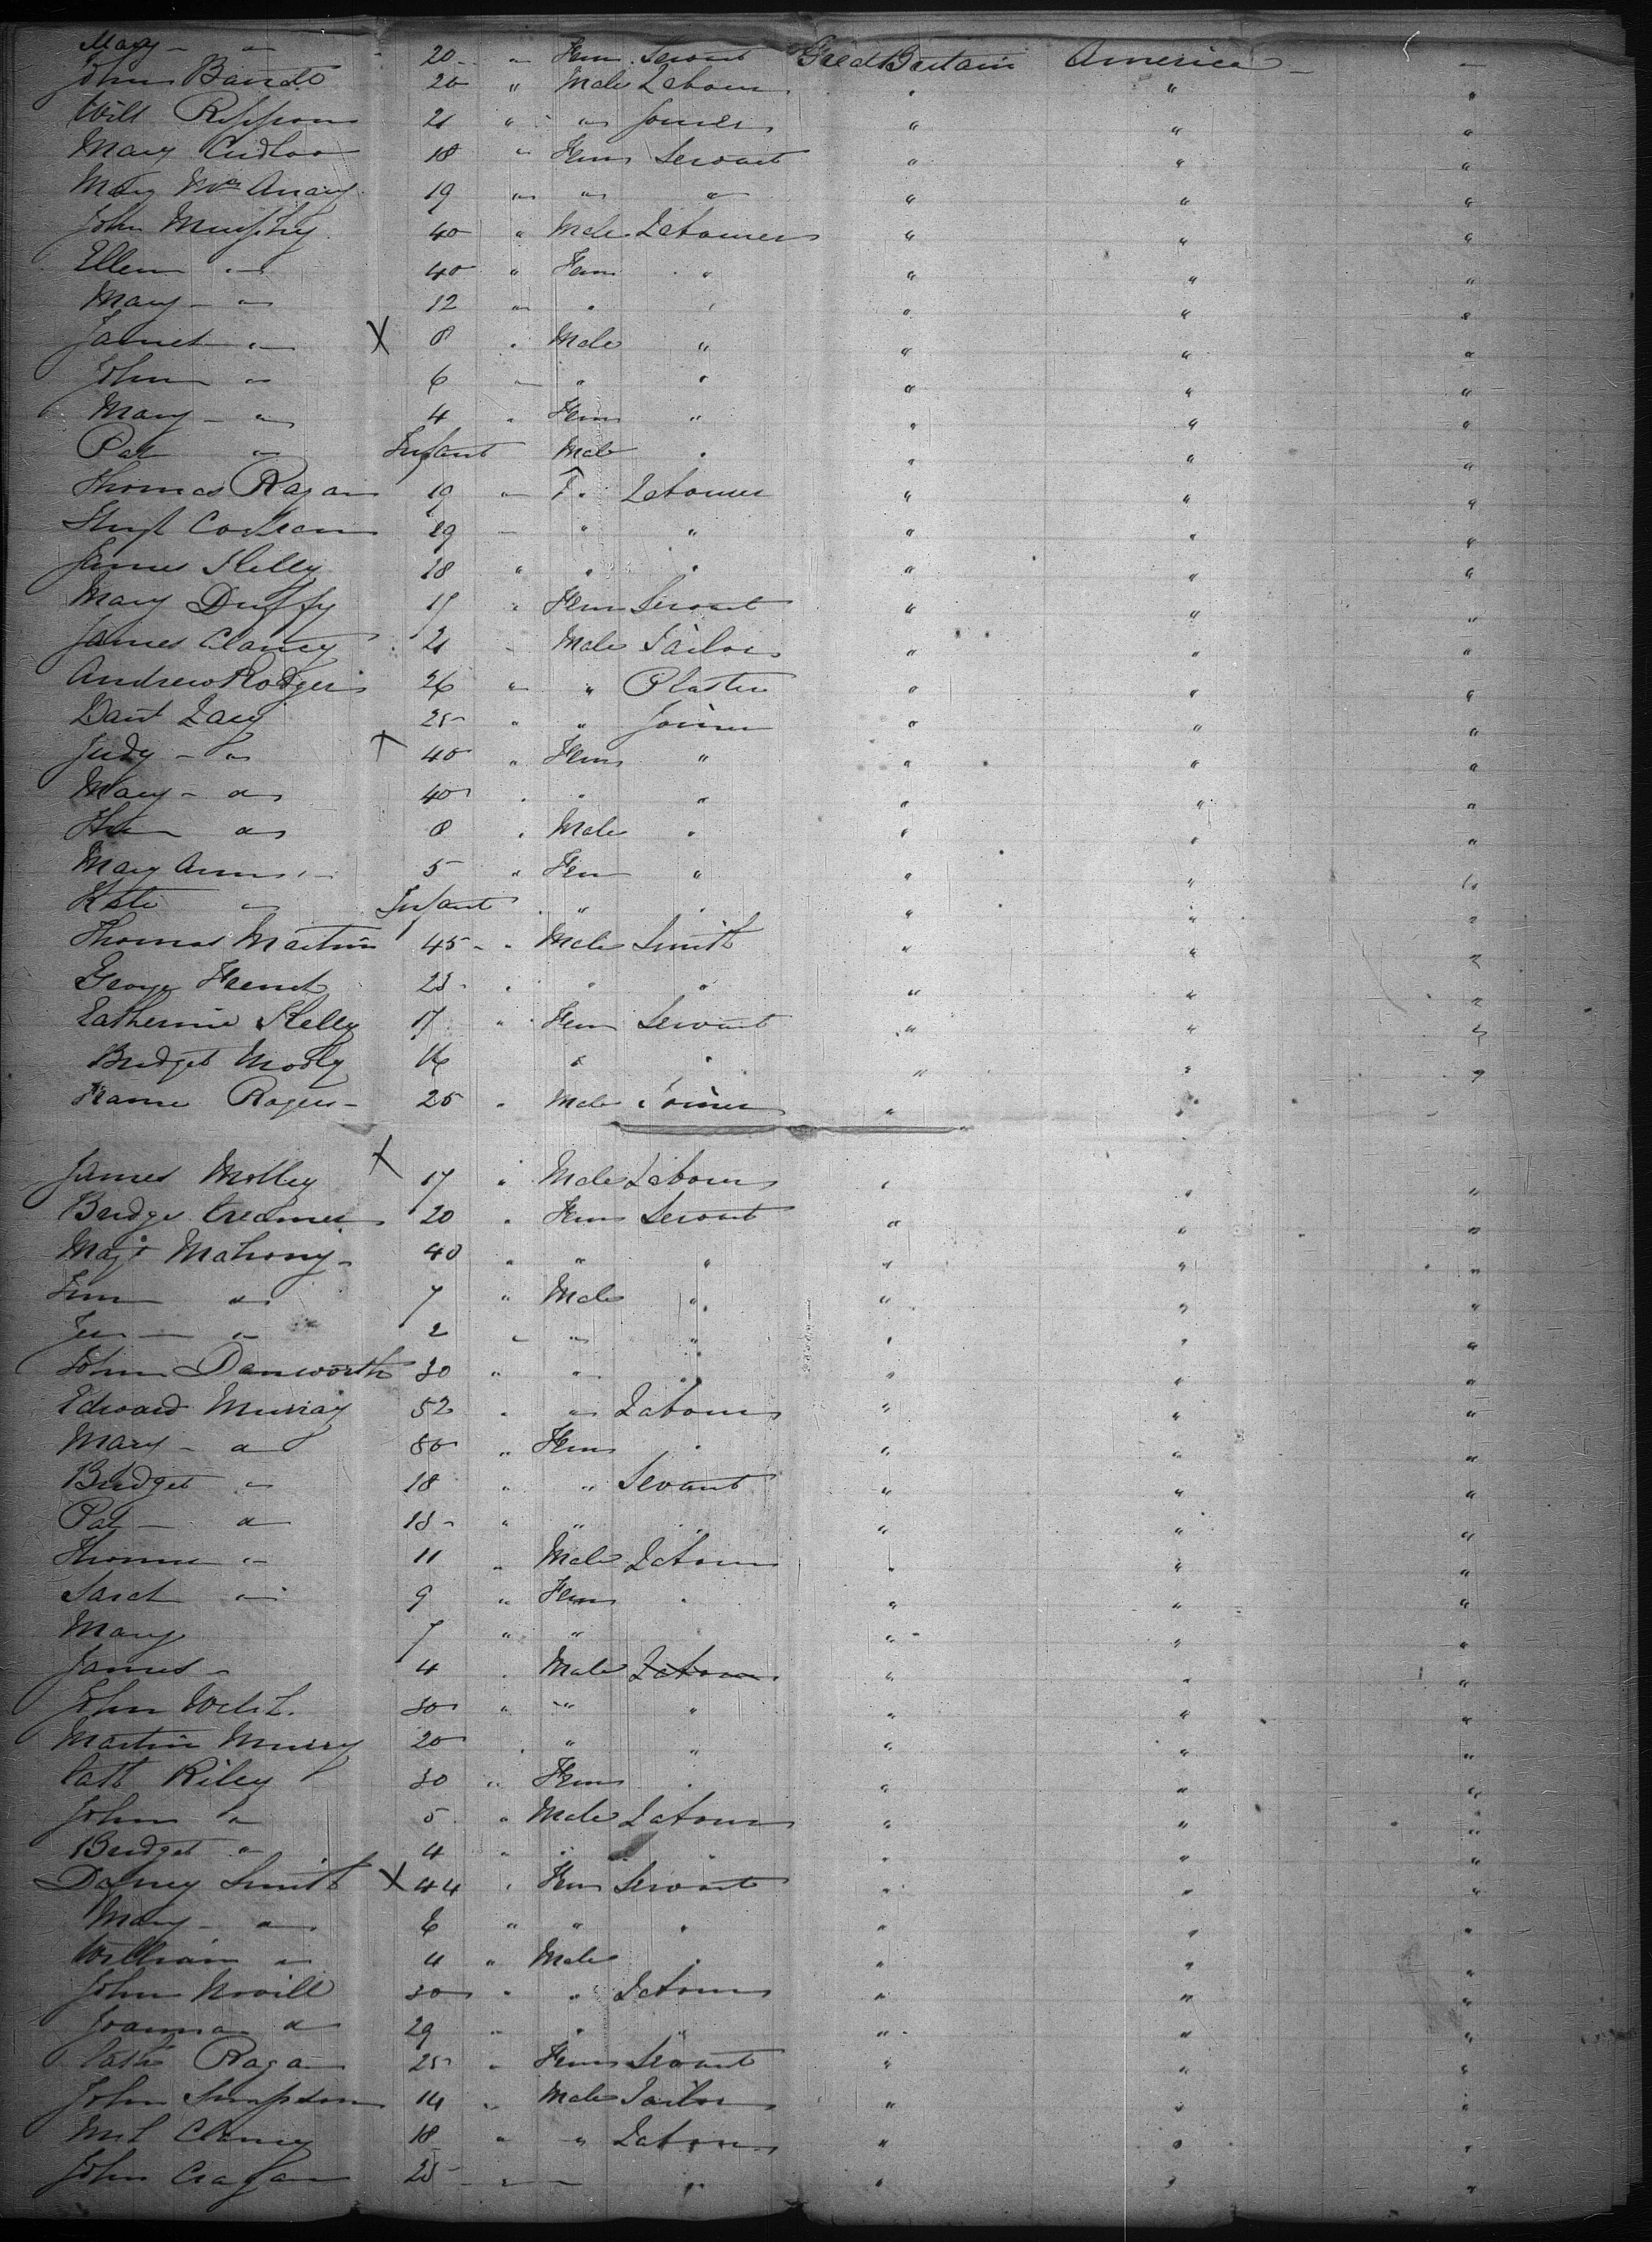 Mary - " 20 - " Fem Servant Great Britain America - -
John Bando 20 " Male Labour " " "
Will Rippon 21 " " Joiner " " "
Mary Cudloo 18 " Fem Servant " " "
Mary Mc Anary 19 " " " " " "
John Murphy 40 " Male Labourer " " "
Ellen " 40 " Fem " " " "
Mary - " 12 " " " " " "
James " X 8 " Male " " " "
John " 6 " " " " " "
Mary - " 4 " Fem " " " "
Pat " Infant Male " " " "
Thomas Ragan 19 " " Labourer " " "
Hugh 29 " " " " " "
James Kelly 28 " " " " " "
Mary Duffy 17 " Fem Servant " " "
James Clancy 21 " Male Tailor " " "
Andrew Rodgers 26 " " Plaster " " "
Lacy 25 " " Joiner " " "
Judy - " X 40 " Fem " " " "
Mary - " 40 " " " " " "
" 8 " Male " " " "
Mary Ann " 5 " Fem " " " "
Kate " Infant " " " " " "
Thomas Martin 45 - " Male Smith " " "
George French 23 - " " " " " "
Catherine Kelly 17 " Fem Servant " " "
Bridget Mody 16 " " " " "
Rogers - 25 " Male Joiner " " "
James Molley X 17 " Male Labour " " "
Bridge Creamer 20 " Fem Servant " " "
Magt Mahony - 40 " " " " " "
" 7 " Male " " " "
- " 2 " " " " " "
John Danworth 30 " " " " " "
Edward Murray 52 " " Labour " " "
Mary - " 50 " Fem " " " "
Bridget " 18 " " Sevant " " "
Pat - " 13 - " " " " " "
Thomas " 11 " Male Labour " " "
Sarah " 9 " Fem " " " "
Mary 7 " " " " "
James - " 4 " Male Labour " " "
John Welsh 30 " " " " " "
Martin Murry 20 " " " " " "
Cath Riley 30 " Fem " " " "
John " 5 " Male Labour " " "
Bridget " 4 " " " " " "
Dafney Smith X 44 " Fem Servant " " "
Mary - " 6 " " " " " "
William " 4 " Male " " " "
John Novill 30 " " Labour " " "
Joanna " 29 " " " " " "
Cath Ragan 25 " Fem Servant " " "
John Simpson 14 " Male Tailor " " "
Clancy 18 " " Labour " " "
John Cragan 25 - " - " " " "